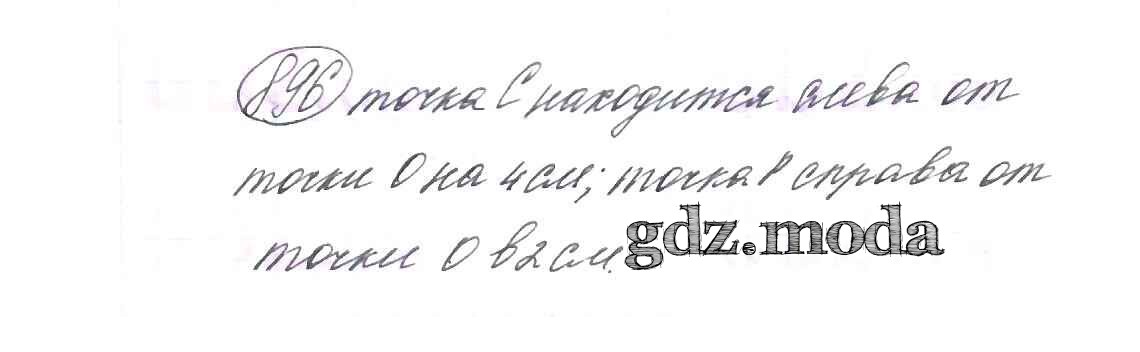 896 точка С находится слева от
точки О на 4 см; точка Р справа от
точки О в 2 см.
gdz.moda